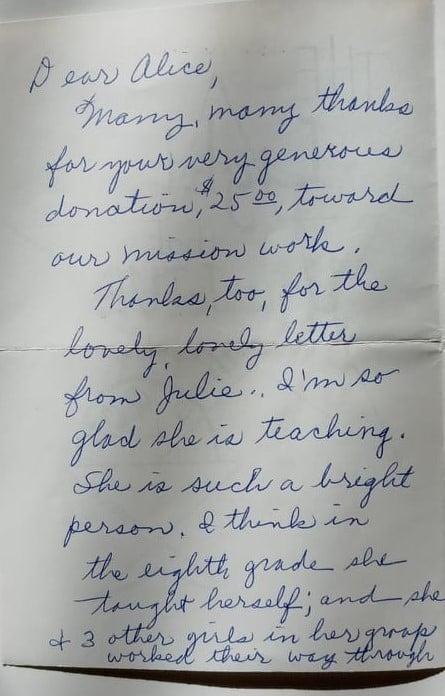 Dear Alice,
Many, many thanks
for your very generous
donation, $25 00, toward
our mission work.
Thanks, too, for the
lovely, lovely letter
from Julie.. I'm so
glad she is teaching.
She is such a bright
person. I think in
the eighth grade she
taught herself; and she
& 3 other girls in her group
worked their way through